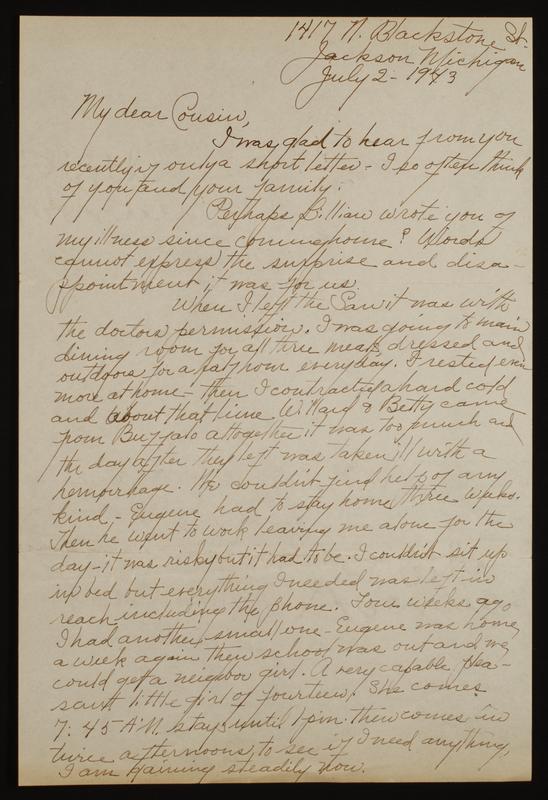 1417 N. Blackstone St.
Jackson Michigan
July 2 - 1943
My dear Cousin,
I was glad to hear from you
recently if only a short letter - I so often think
of you and your family.
Perhaps Billian wrote you of
my illness since coming home? Words
cannot express the surprise and disa-
ppointment it was for us.
When I left the San it was with
the doctors permission. I was going to main
dining room for all three meals, dressed and
outdoors for a half hour everyday. I rested even
more at home - then I contracted a hard cold
and about that time Willard & Betty came
from Buffalo altogether it was too much and
the day after they left was taken ill with a
hemorrhage. We couldn't find help of any
kind, - Eugene had to stay home three weeks.
Then he went to work leaving me alone for the
day - it was risky but it had to be. I couldn't sit up
in bed but everything I needed was left in
reach including the phone. Four weeks ago
I had another, small one - Eugene was home
a week again then school was out and we
could get a neighbor girl. A very capable plea-
sant little girl of fourteen. She comes
7:45 A.M. stays until 1 p.m. then comes in
twice afternoons, to see if I need anything,
I am gaining steadily now.